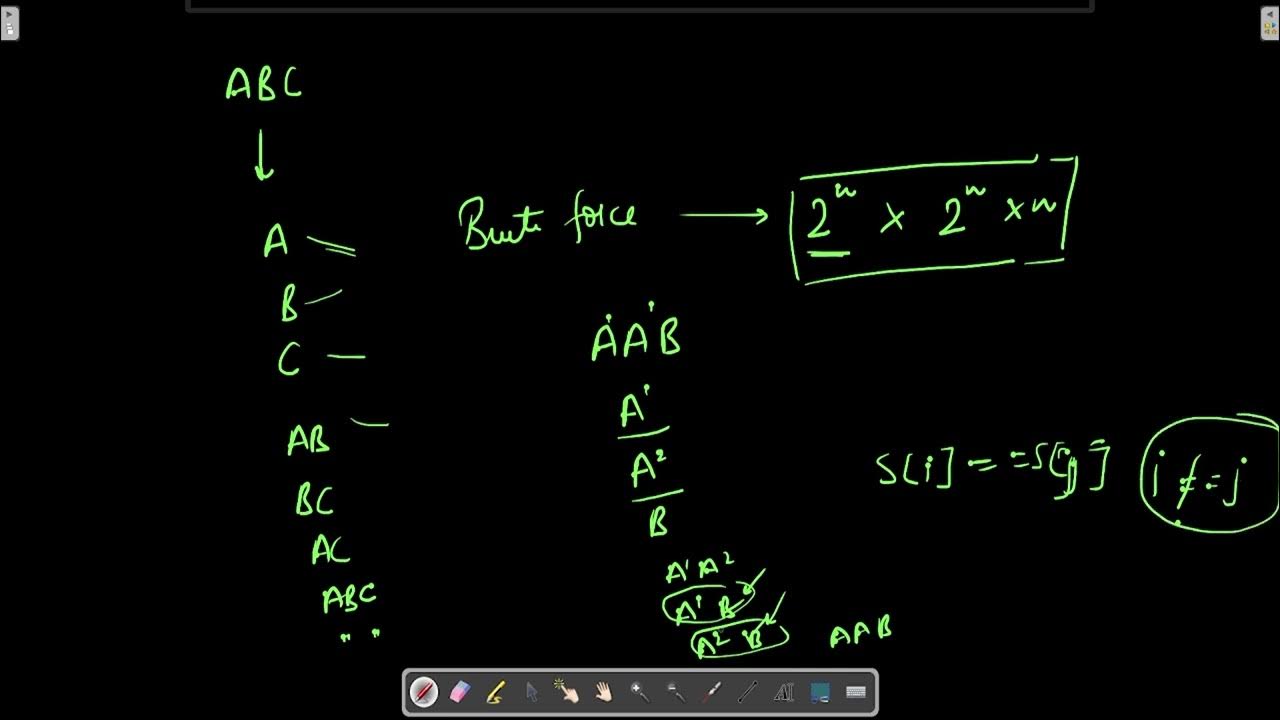 ABC
A
B
C
AB
BC
AC
ABC
" "
Brute force → 2ⁿ × 2ⁿ × n
AAB
A¹
A²
B
A¹ A²
A¹ B
A² B
AAB
S[i] = = S[j]
i != j
AI